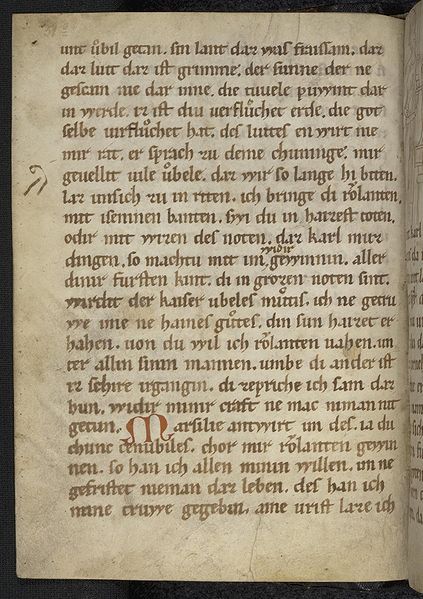 unt ůbil getan. sin lant daz was fraissam. daz
daz lutt daz ist grimme. der sunne der ne
gescain nie dar inne. die tiuuele puwint dar
in werde. iz ist diu verflůchet erde. die got
selbe uirflůchet hat. des luttes en wirt nie
mir rat. er sprach zu deme chuninge. mir
geuellit uile ůbele. daz wir so lange hi biten.
laz unsich zu in riten. ich bringe di růlanten.
mit iseninen banten.
odir mit wizen des noten. daz karl mit
dingen. so machtu mit im widir gewinnin. aller
dinir fursten kint. di in grozen noten sint.
wirdit der kaiser ubeles můtis. ich ne getru
we ime ne haines gůtes. din sun haizet er
hahen. uon du wil ich rôlanten uahen. un
ter allin sinin mannen. umbe di ander ist
iz schire irgangin. di repriche ich sam daz
hun. widir minir craft ne mac niman nit
getun. Marsilie antwirt un des. ia du
chunc cenubiles. chor mir rôlanten gewin
nen. so han ich allen minin willen. un ne
gefristet nieman daz leben. des han ich
mine truwe gegebin. ane urist laze ich